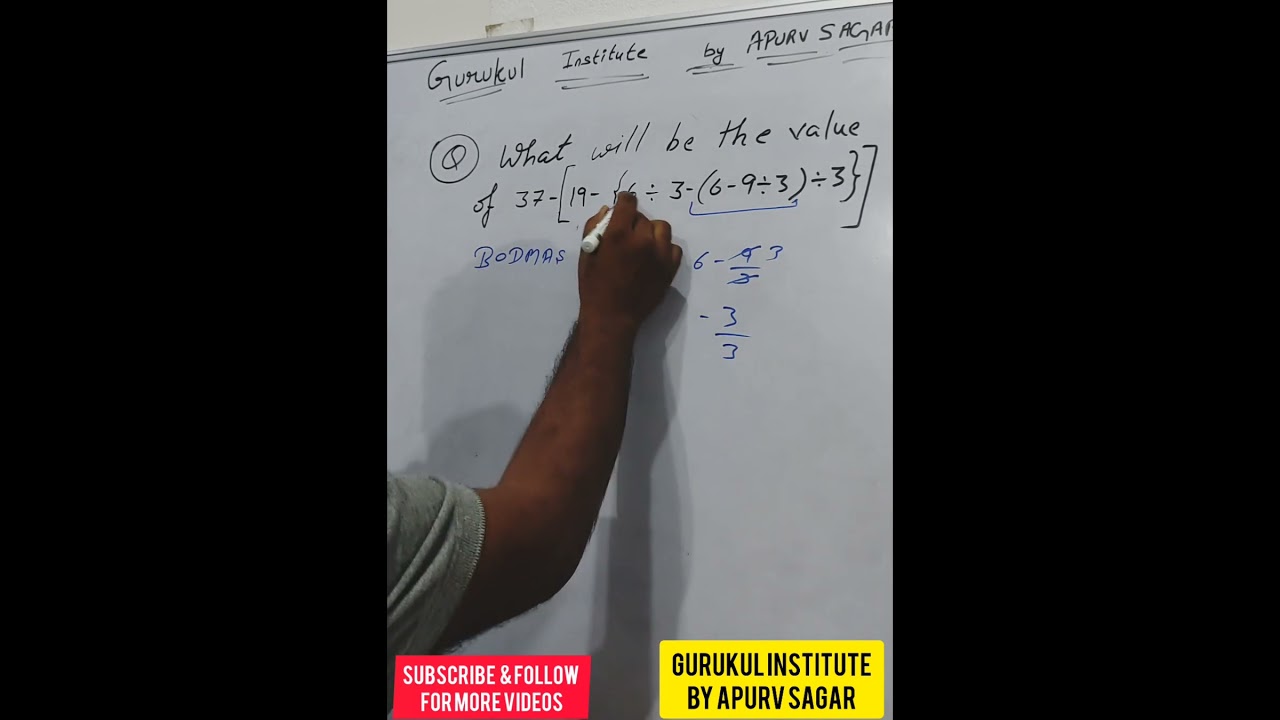 Gurukul Institute by APURV SAGAR
Q What will be the value
of 37-[19-{6÷3-(6-9÷3)÷3}]
BODMAS
6-9/3 3
-3/3
SUBSCRIBE & FOLLOW
FOR MORE VIDEOS
GURUKUL INSTITUTE
BY APURV SAGAR